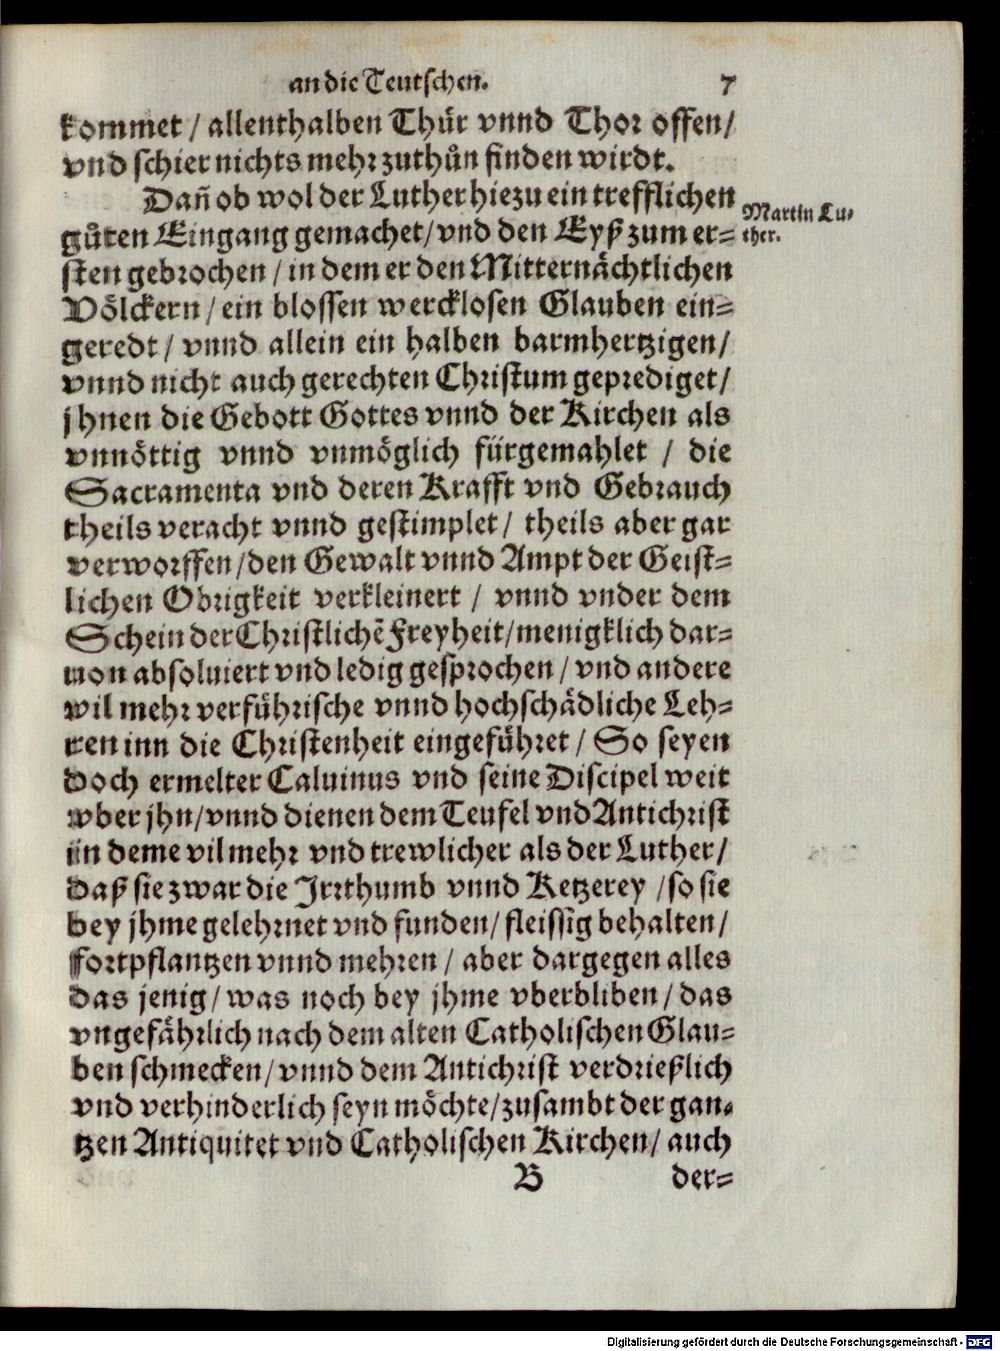 an die Teutschen. 7
kommet / allenthalben Thuͤr vnnd Thor offen/
vnd schier nichts mehr zuthuͤn finden wirdt.
Dañ ob wol der Luther hiezu ein trefflichen
Martin Lu-
guͤten Eingang gemachet/ vnd den Eyß zum er=
ther.
sten gebrochen / in dem er den Mitternaͤchtlichen
Voͤlckern / ein blossen wercklosen Glauben ein=
geredt / vnnd allein ein halben barmhertzigen/
vnnd nicht auch gerechten Christum geprediget/
jhnen die Gebott Gottes vnnd der Kirchen als
vnnoͤttig vnnd vnmoͤglich fuͤrgemahlet / die
Sacramenta vnd deren Krafft vnd Gebrauch
theils veracht vnnd gestimplet / theils aber gar
verworffen /den Gewalt vnnd Ampt der Geist=
lichen Obrigkeit verkleinert / vnnd vnder dem
Schein der Christlichē Freyheit/ menigklich dar=
uon absoluiert vnd ledig gesprochen / vnd andere
vil mehr verfuͤhrische vnnd hochschaͤdliche Leh=
ren inn die Christenheit eingefuͤhret / So seyen
doch ermelter Caluinus vnd seine Discipel weit
vber jhn/ vnnd dienen dem Teufel vnd Antichrist
in deme vil mehr vnd trewlicher als der Luther/
daß sie zwar die Jrrthumb vnnd Ketzerey / so sie
bey jhme gelehrnet vnd funden/ fleissig behalten/
fortpflantzen vnnd mehren / aber dargegen alles
das jenig / was noch bey jhme vberbliben / das
vngefaͤhrlich nach dem alten Catholischen Glau=
ben schmecken/ vnnd dem Antichrist verdrießlich
vnd verhinderlich seyn moͤchte/ zusambt der gan-
tzen Antiquitet vnd Catholischen Kirchen/ auch
B der=
Digitalisierung gefördert durch die Deutsche Forschungsgemeinschaft - DFG